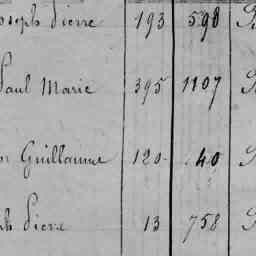 Joseph Pierre 193 590
Paul Marie 395 1107
Guillaume 120 40
Pierre 13 758